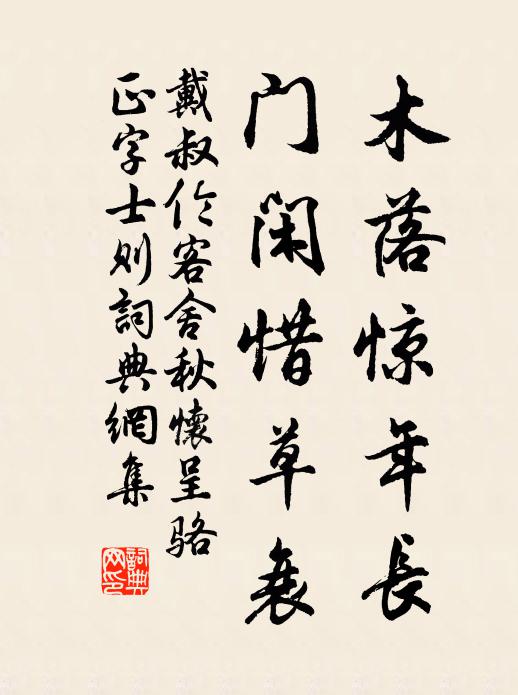 木落惊年长
门闲惜草衰
戴叔伦客舍秋怀呈骆
正字士则詞典網集
詞典网印